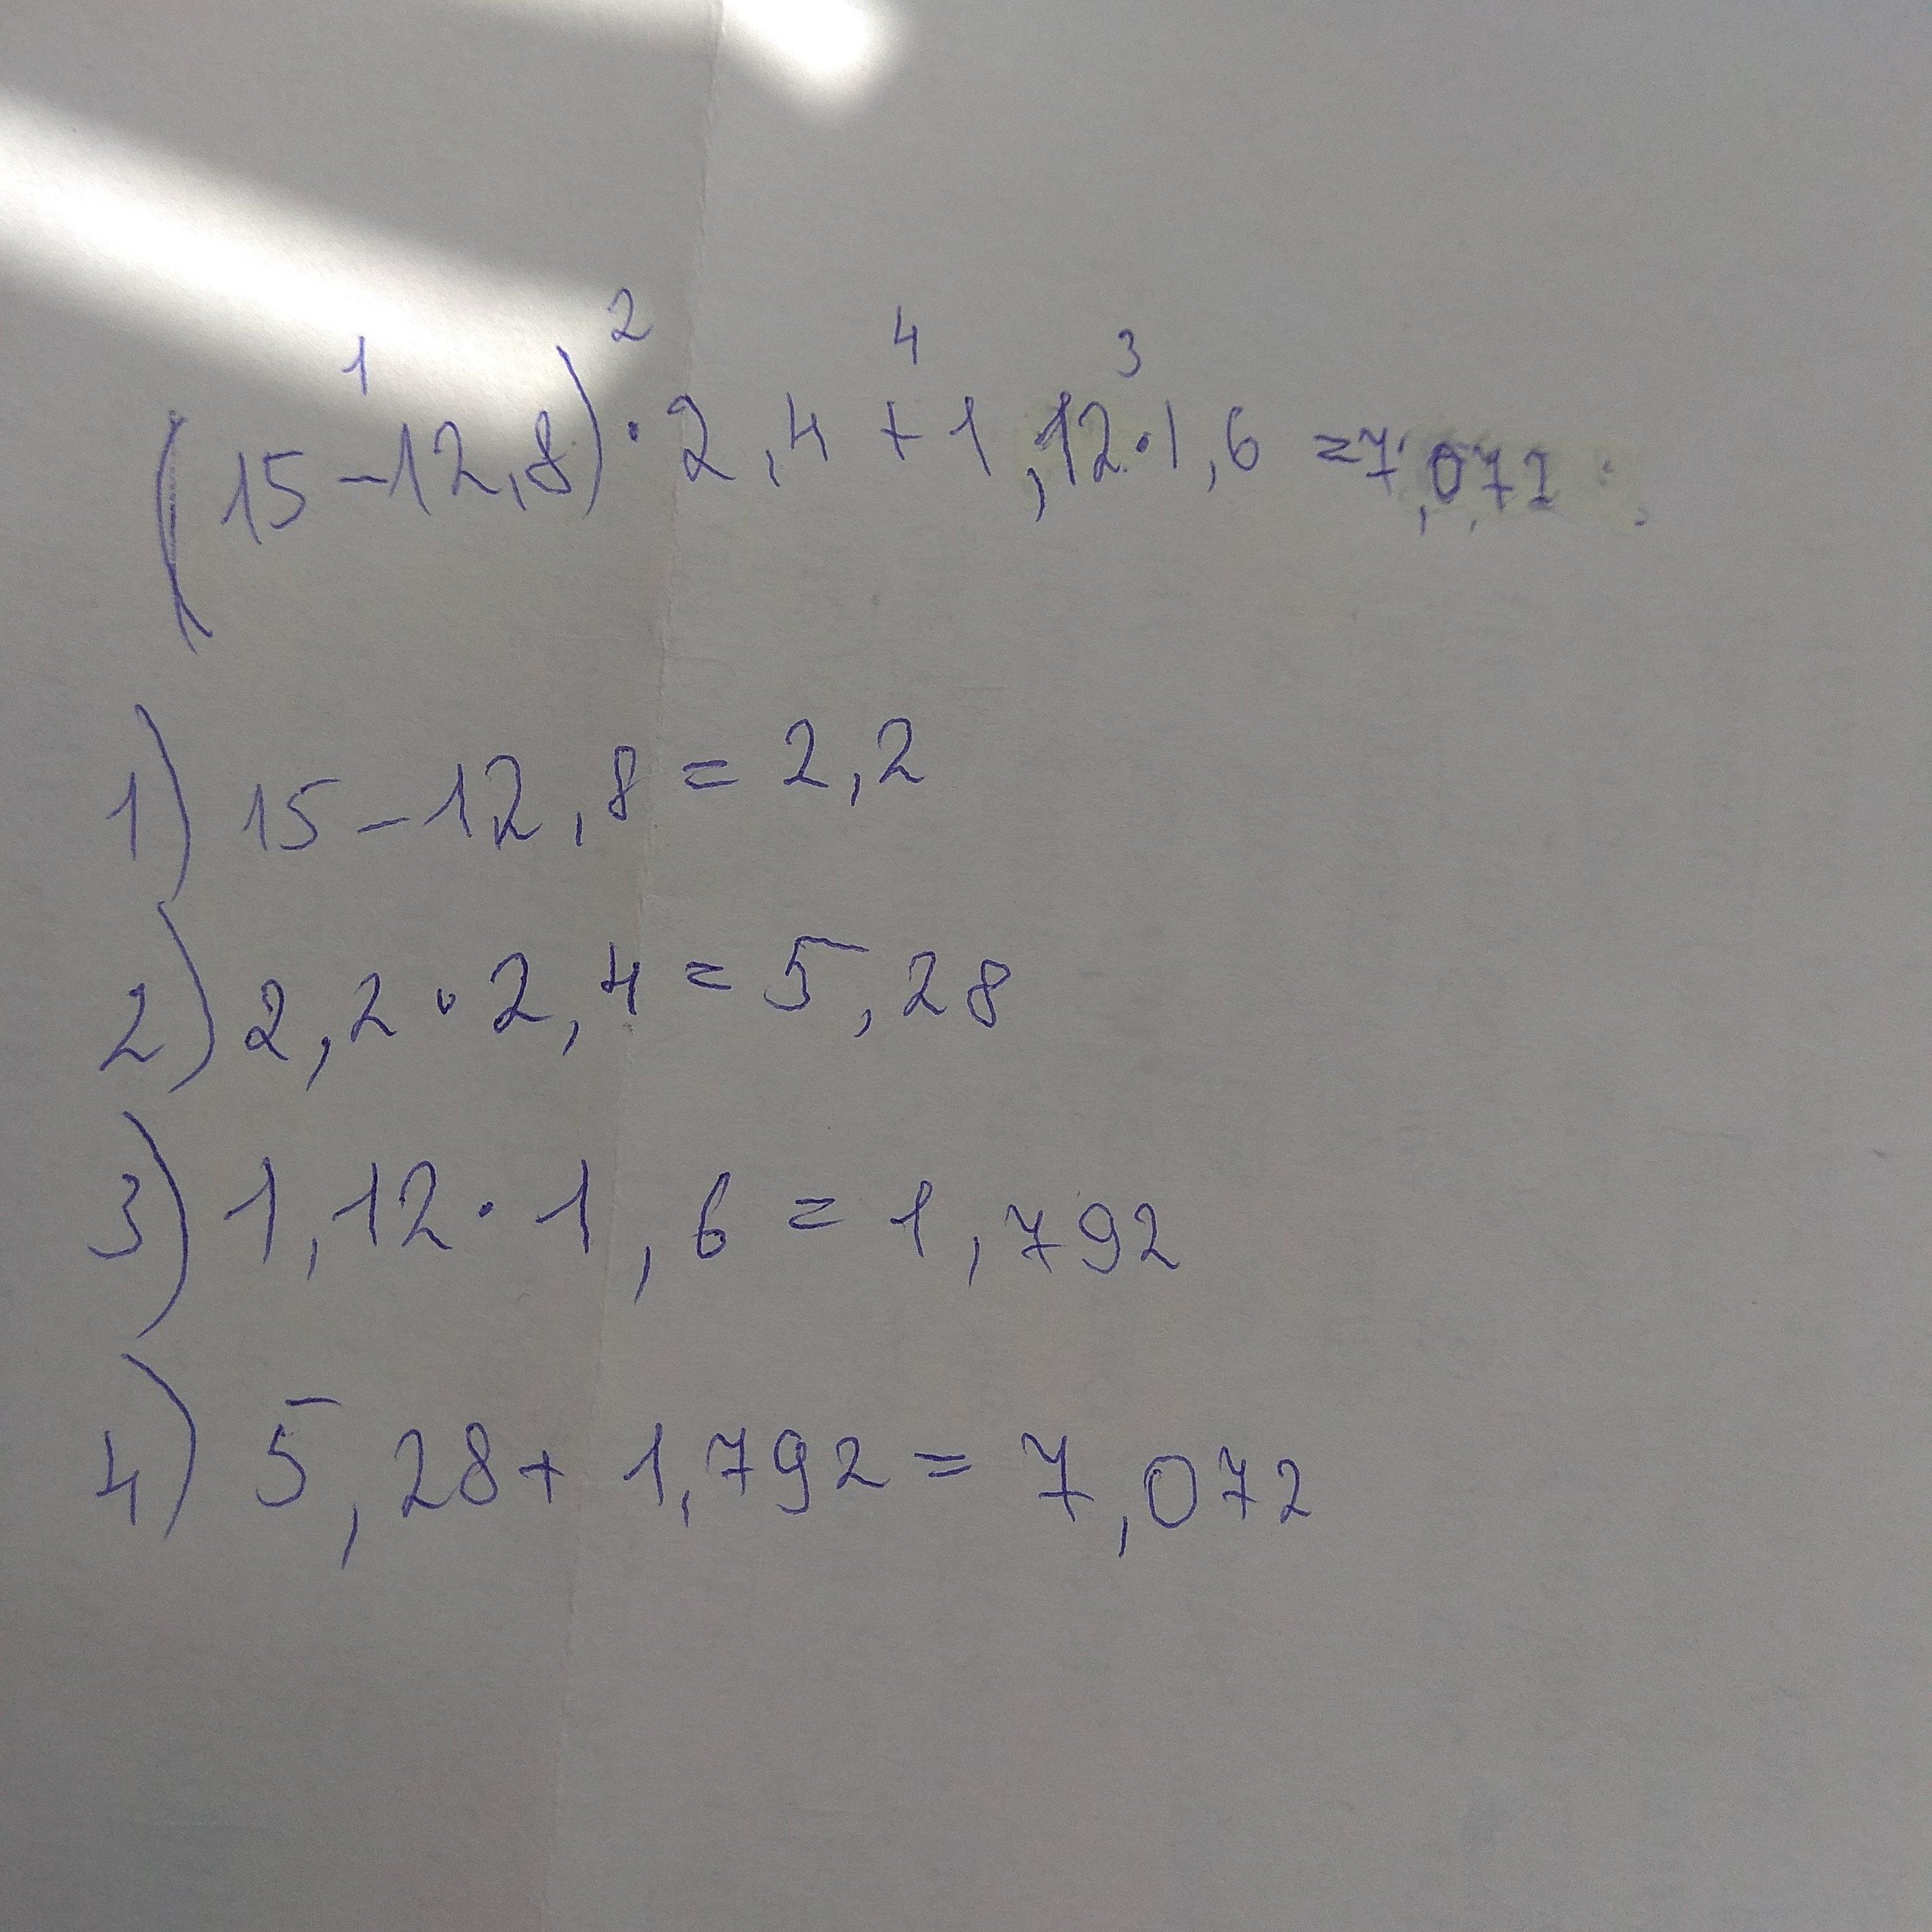 1 2 4 3
(15-12,8)·2,4+1,12·1,6=7,072
1) 15-12,8=2,2
2) 2,2·2,4=5,28
3) 1,12·1,6=1,792
4) 5,28+1,792=7,072